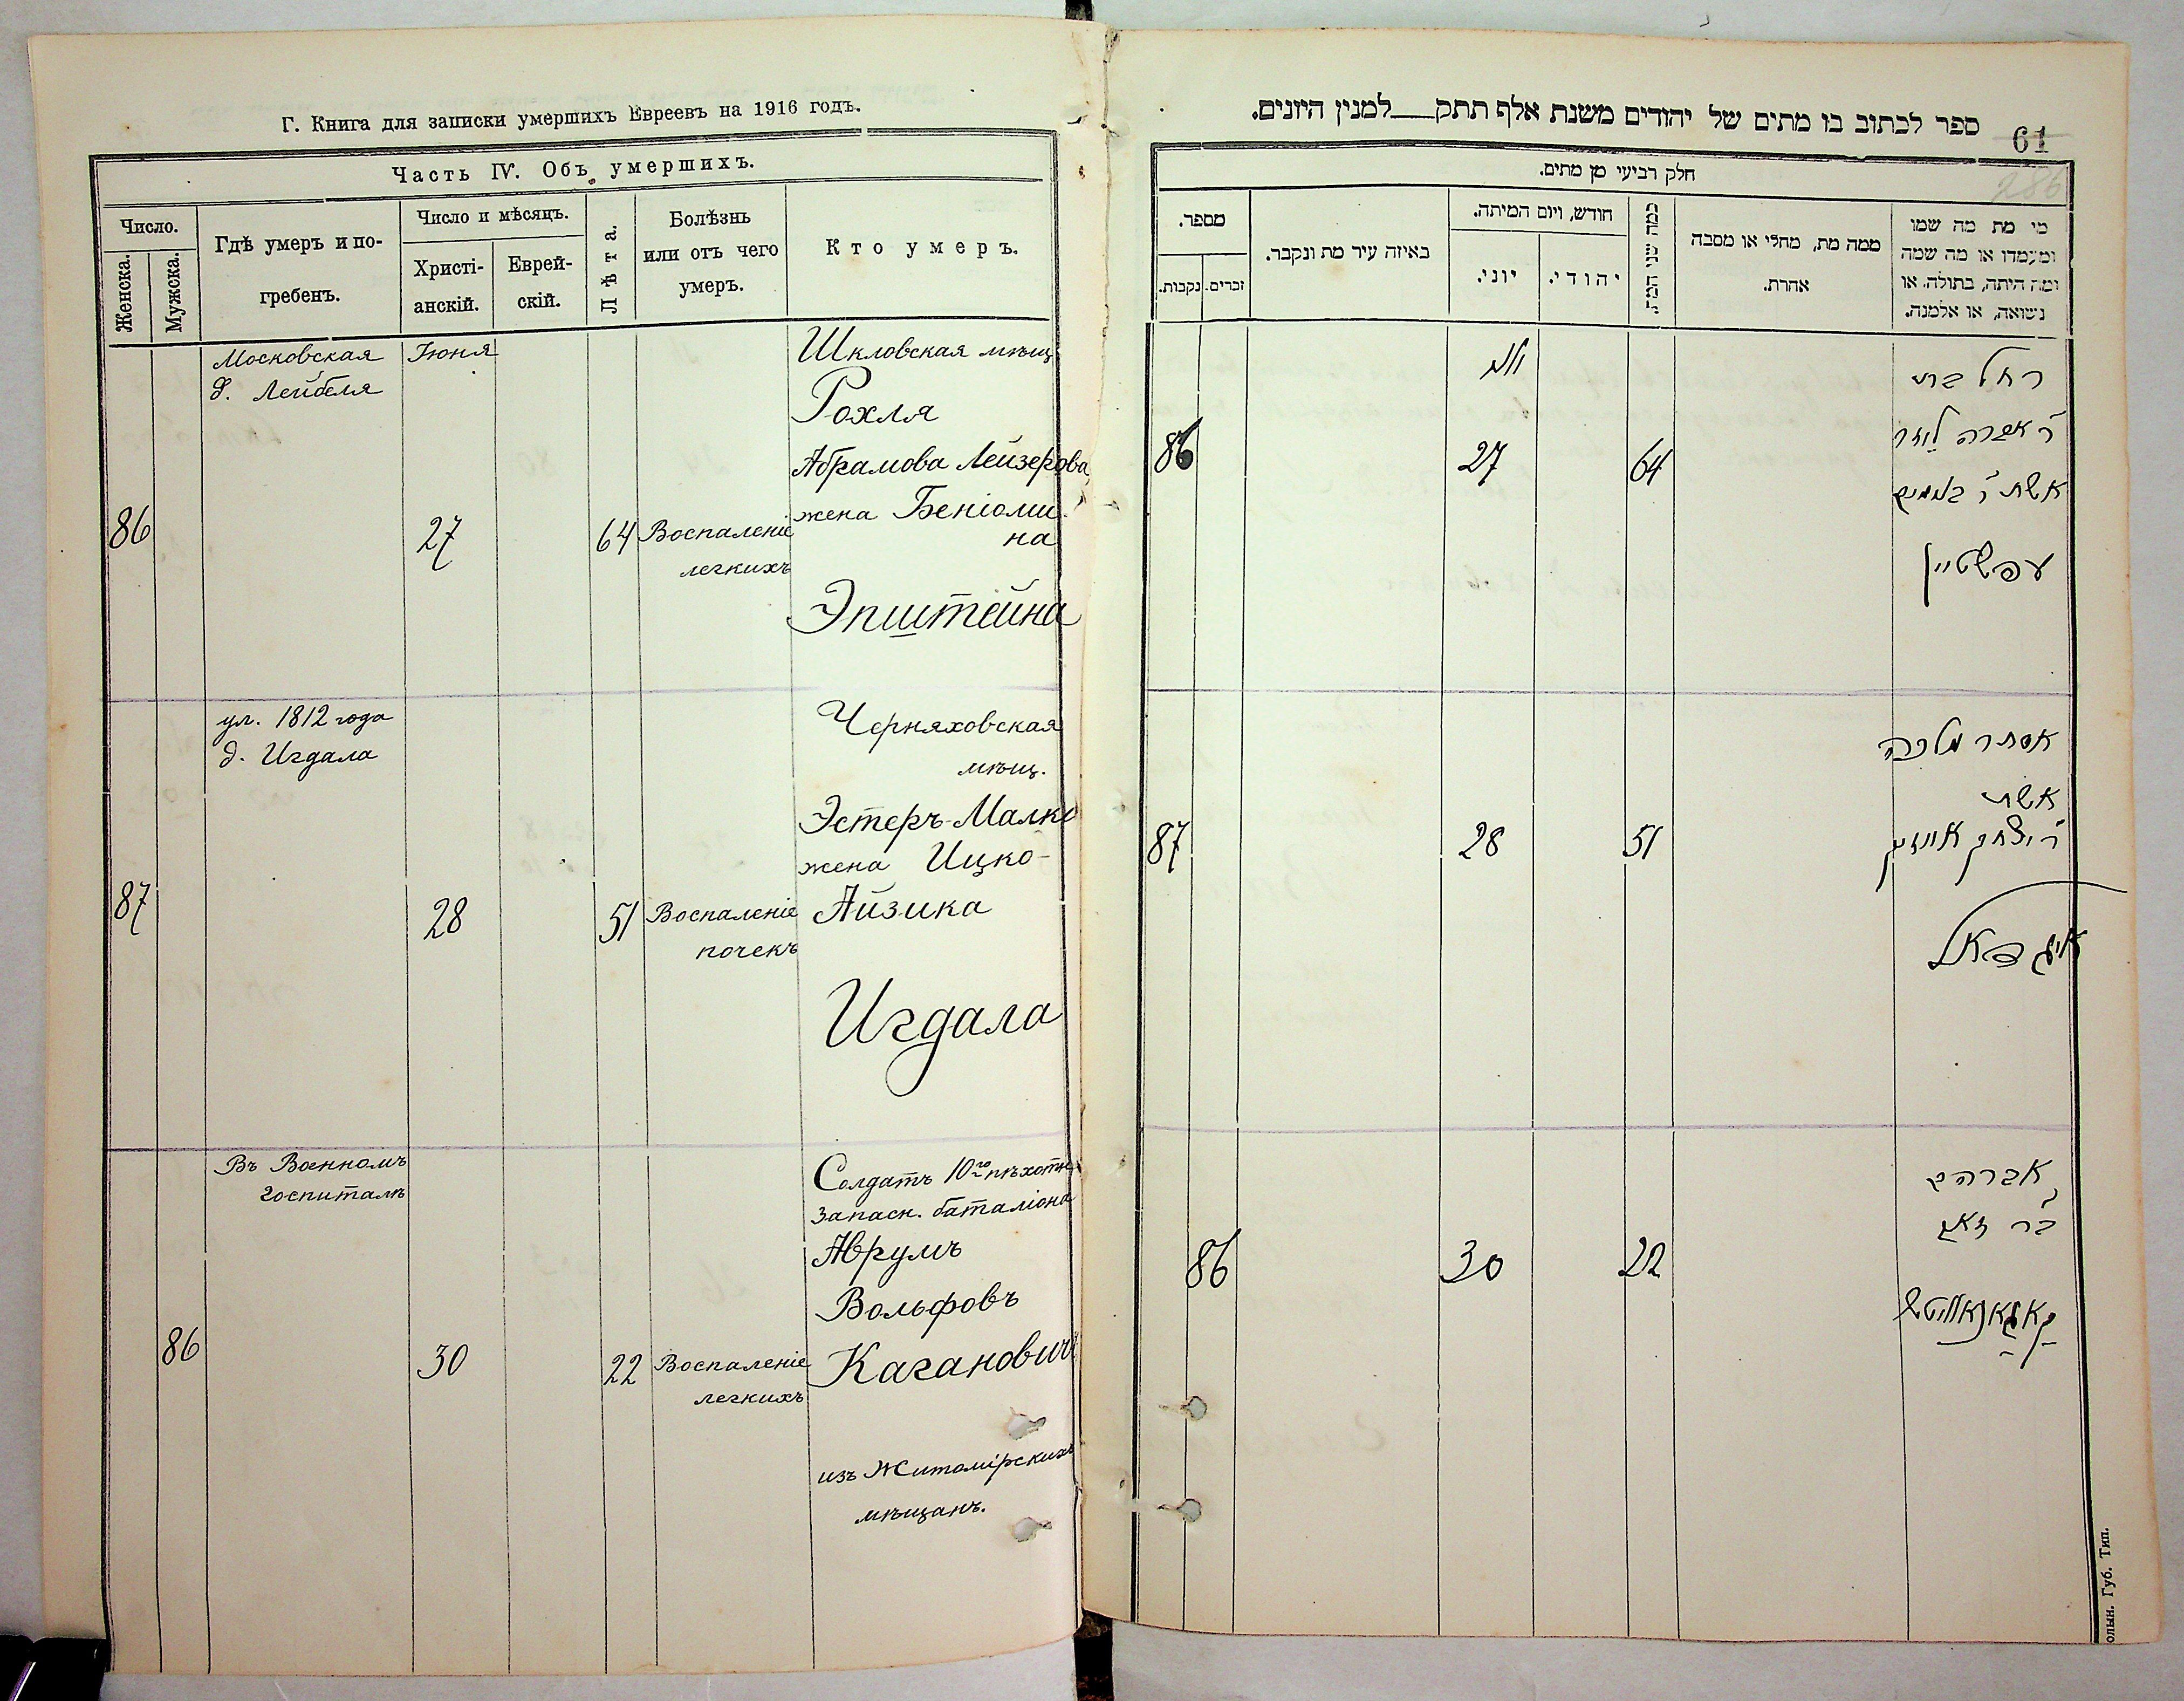 Г. Книга для записки умершихъ Евреевъ на 1916 годъ.
Часть IV. Объ умершихъ.
Число.
Женска.
Мужска.
Гдѣ умеръ и по-
гребенъ.
Число и мѣсяцъ.
Христі-
анскій.
Еврей-
скій.
Лѣта.
Болѣзнь
или отъ чего
умеръ.
Кто умеръ.
Московская
д. Лейбеля
Іюня
86
27
64
Воспаленіе
легкихъ
Шкловская мѣщ
Рохля
Абрамова Лейзерова
жена Беніоми
на
Эпштейна
ул. 1812 года
д. Игдала
87
28
51
Воспаленіе
почекъ
Черняховская
мѣщ.
Эстеръ-Малка
жена Ицко-
Айзика
Игдала
Въ Военномъ
госпиталѣ
86
30
22
Воспаленіе
легкихъ
Солдатъ 10го пѣхотн.
запасн. баталіона
Аврумъ
Вольфовъ
Кагановичъ
изъ Житомірскихъ
мѣщанъ.
ספר לכתוב בו מתים של יהודים משנת אלף תתק למנין היונים.
61
286
חלק רביעי מן מתים.
מספר.
נקבות.
זכרים.
באיזה עיר מת ונקבר.
חודש, ויום המיתה.
יוני.
יהודי.
כמה שני המת.
ממה מת, מחלי או מסבה
אהרת.
מי מת מה שמו
ומעמדו או מה שמה
ומה היתה, בתולה, או
נשואה, או אלמנה.
86
27
64
רחל בת
אשת ר בנימין
עפשטיין
87
28
51
אסתר מלכה
אשת
ר יצחק אייזיק
איגדאל
86
30
22
אברהם
ב"ר זאב
קאגאנאוויטש
олын. Губ. Тип.